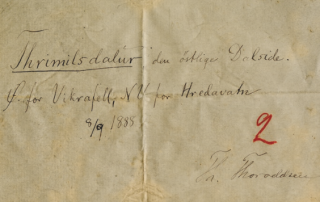 Thrimilsdalur den östlige Dalside.
Ø. for Vikrafell, NV for Hredavatn
8/9 1888
2
Th. Thoroddsen